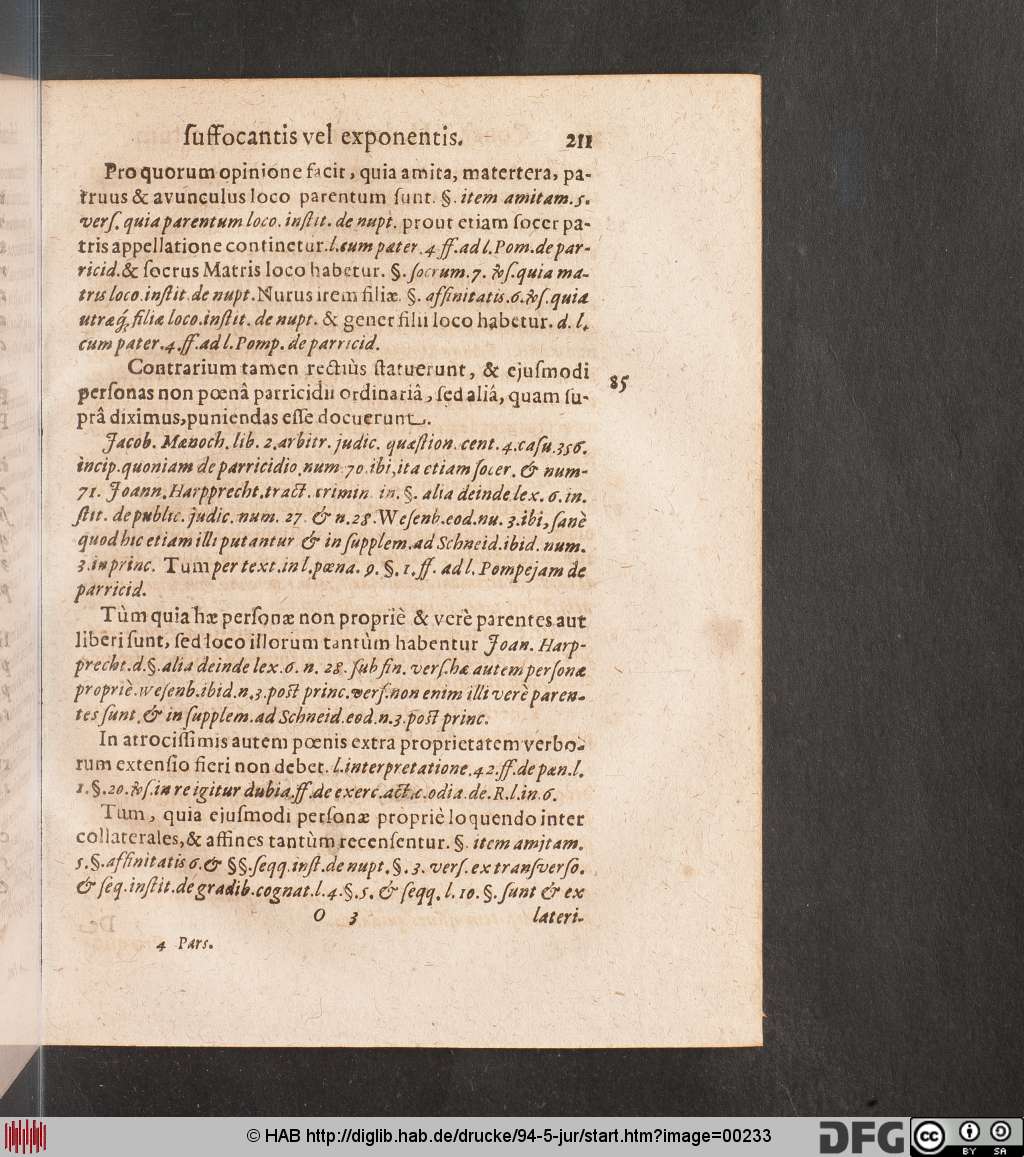 ſuffocantis vel exponentis. 211
Pro quorum opinione facit, quia amita, matertera, pa-
truus & avunculus loco parentum ſunt. §. item amitam. 5.
verſ. quia parentum loco. inſtit. de nupt. prout etiam ſocer pa-
tris appellatione continetur. l. cum pater. 4 ff. ad l. Pom. de par-
ricid. & ſocrus Matris loco habetur. §. ſocrum. 7. v̓ſ. quia ma-
tris loco. inſtit. de nupt. Nurus irem filiæ. §. affinitatis. 6. v̓ſ. quia
utræq́; filiæ loco. inſtit. de nupt. & gener filii loco habetur. d. l.
cum pater. 4. ff. ad l. Pomp. de parricid.
Contrarium tamen rectiùs ſtatuerunt, & ejuſmodi 85
perſonas non pœnâ parricidii ordinariâ, ſed aliâ, quam ſu-
prâ diximus, puniendas eſſe docuerunt.
Jacob. Mænoch. lib. 2. arbitr. judic. quæſtion. cent. 4. caſu. 356.
incip. quoniam de parricidio. num. 70. ibi, ita etiam ſocer. & num-
71. Joann. Harpprecht. tract. crimin. in. §. alia deinde lex. 6. in.
ſtit. de public. judic. num. 27. & n. 28. Weſenb. eod. nu. 3. ibi, ſanè
quod hic etiam illi putantur & in ſupplem. ad Schneid. ibid. num.
3. in princ. Tum per text. in l. pœna. 9. §. 1. ff. ad l. Pompejam de
parricid.
Tùm quia hæ perſonæ non propriè & verè parentes aut
liberi ſunt, ſed loco illorum tantùm habentur Joan. Harp-
precht. d. §. alia deinde lex. 6. n. 28. ſub fin. verſ. hæ autem perſonæ
propriè. weſenb. ibid. n. 3. poſt princ. verſ. non enim illi verè paren-
tes ſunt. & in ſupplem. ad Schneid. eod. n. 3. poſt princ.
In atrociſſimis autem pœnis extra proprietatem verbo-
rum extenſio fieri non debet. l. interpretatione. 42. ff. de pæn. l.
1. §. 20. v̓ſ. in re igitur dubia. ff. de exerc. act. c. odia. de. R. l. in. 6.
Tum, quia ejuſmodi perſonæ propriè loquendo inter
collaterales, & affines tantùm recenſentur. §. item amitam.
5. §. affinitatis 6. & §§. ſeqq. inſt. de nupt. §. 3. verſ. ex transverſo.
& ſeq. inſtit. de gradib. cognat. l. 4. §. 5. & ſeqq. l. 10. §. ſunt & ex
O 3 lateri-
4 Pars.
© HAB http://diglib.hab.de/drucke/94-5-jur/start.htm?image=00233
DFG
cc BY SA